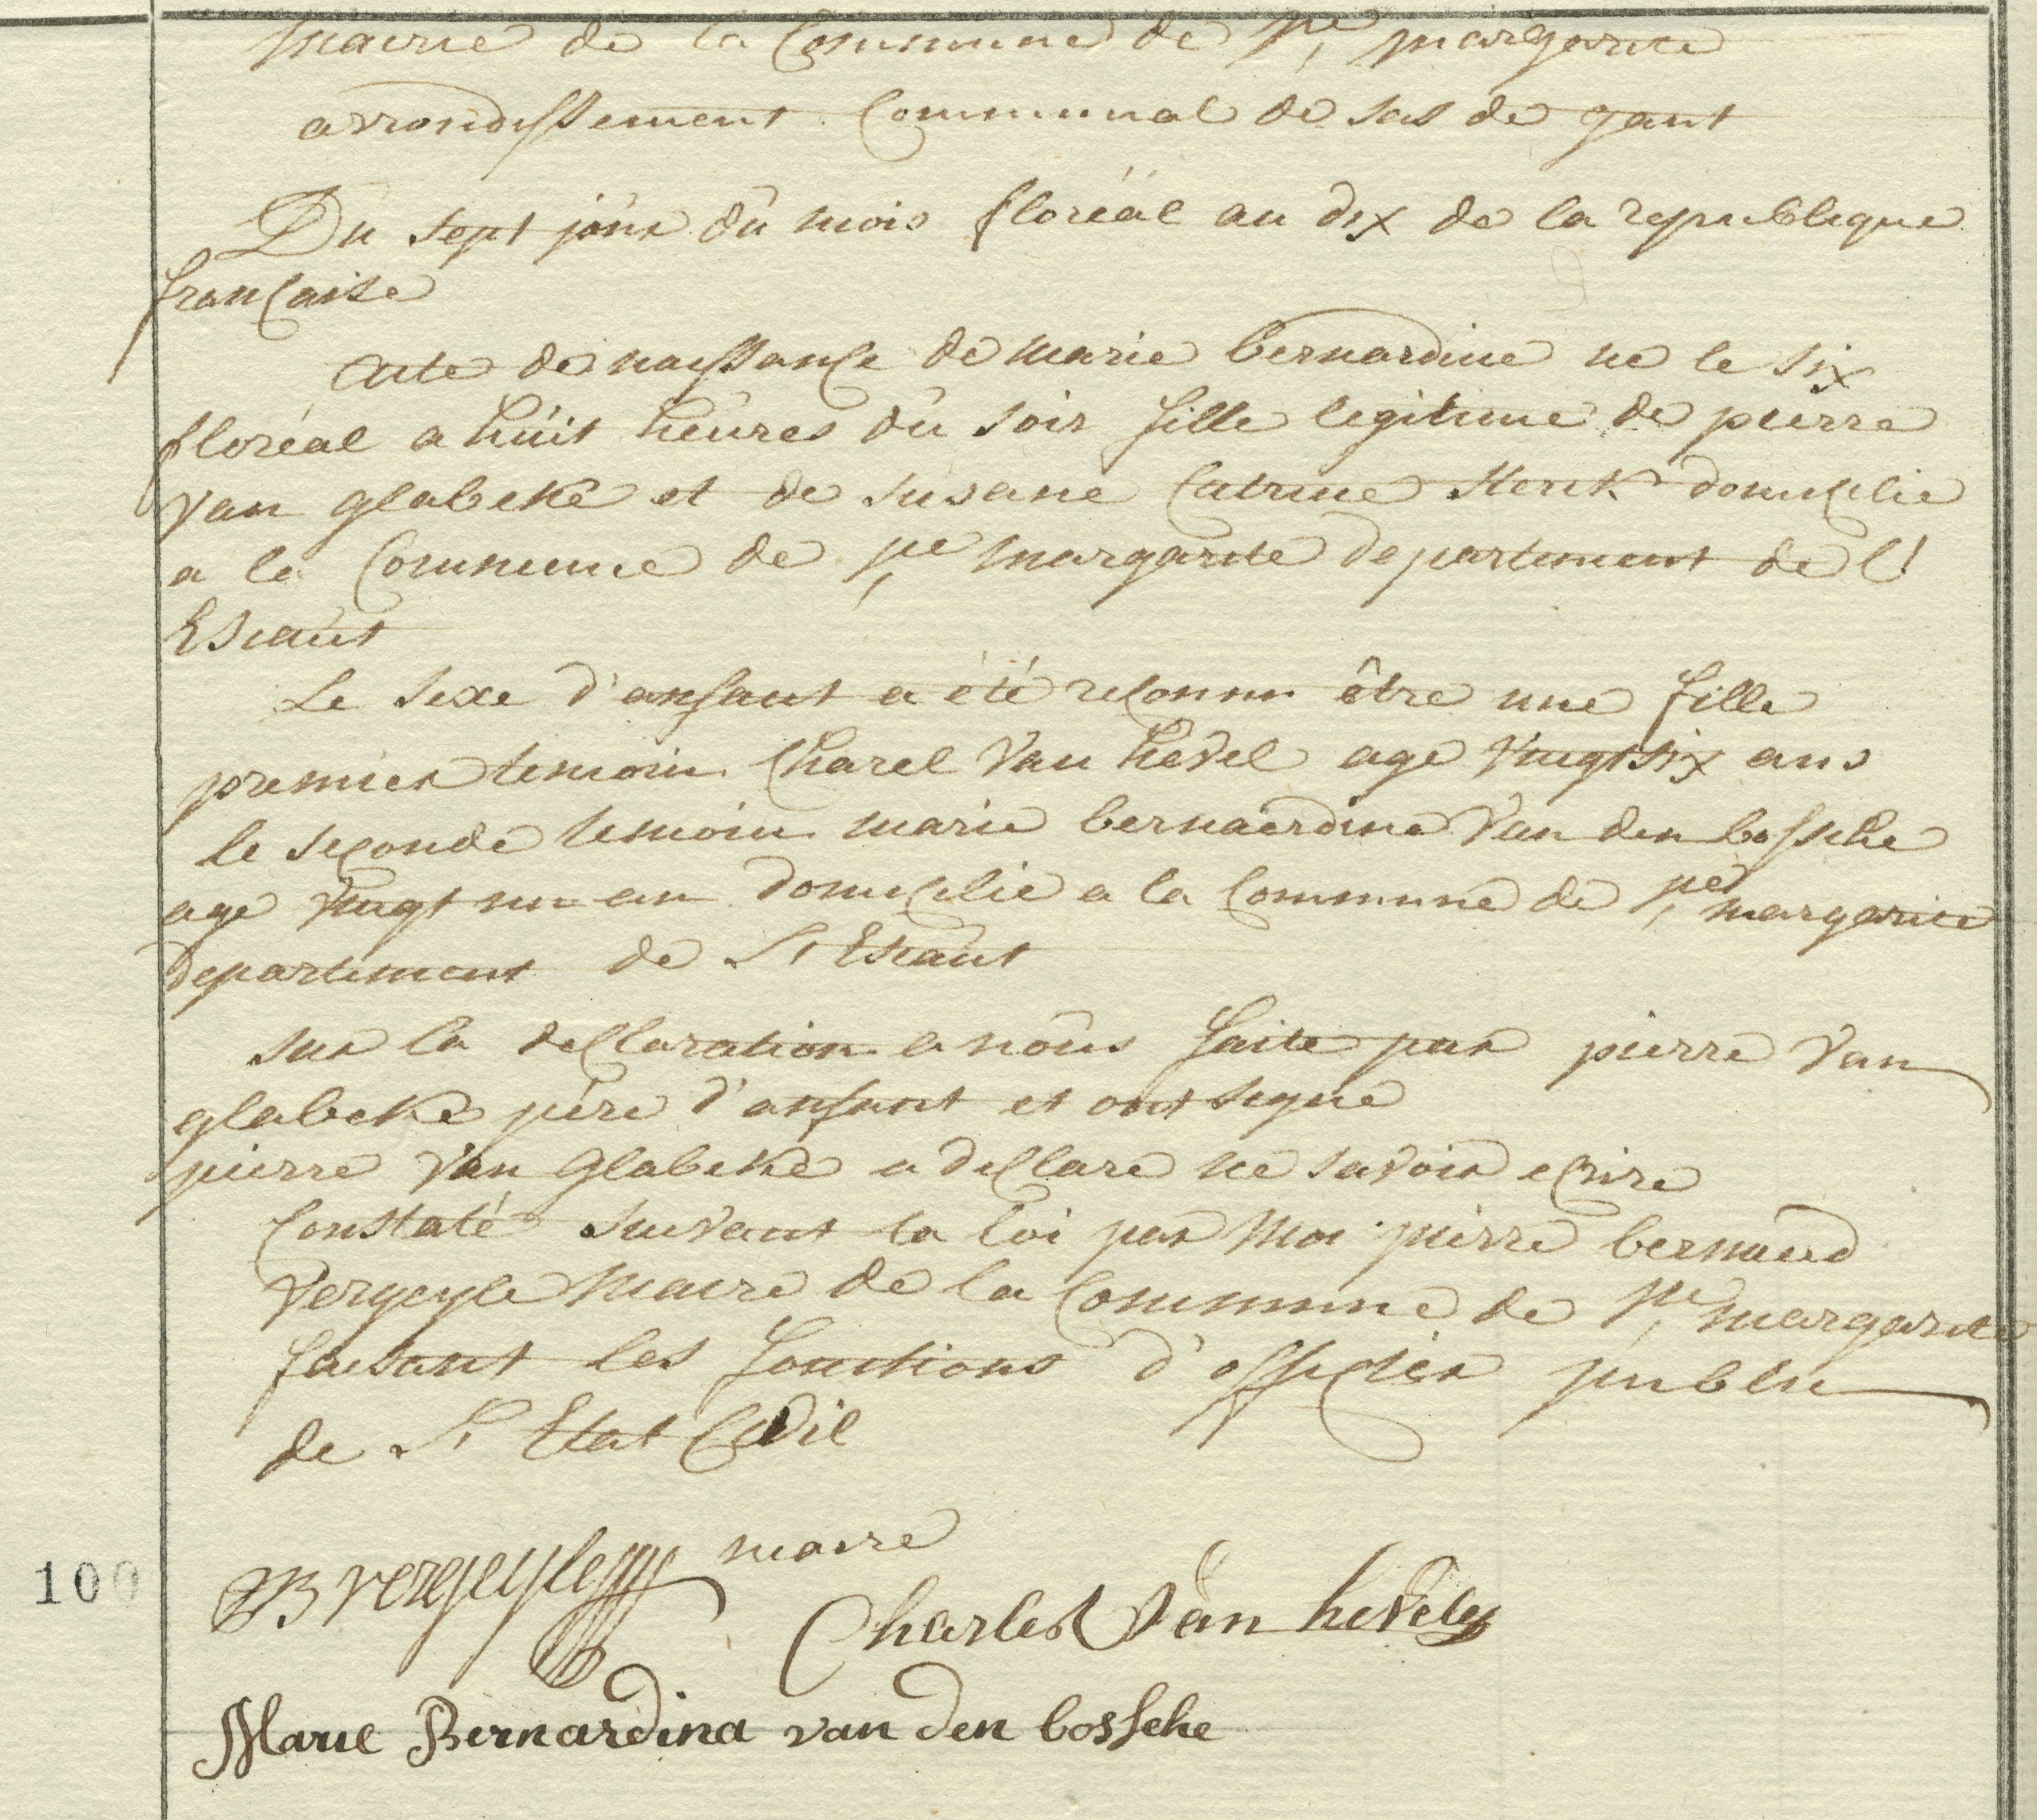 Mairie de la Commune de Ste margarite
arrondissement Communal de sas de gant
Du sept jour du mois floréal an dix de la republique
française
Acte de naissance de marie bernardine ne le six
floréal a huit heures du soir fille legitime de pierre
van glabeke et de susane Catrine Sterk domicilie
a la Commune de Ste margarite departement de l'
Escaut
Le sexe d'anfant a été reconnu être une fille
premier temoin Charel Van hevel age vingt six ans
le seconde temoin marie bernaerdine Van den bossche
age vingt un an domicilie a la Commune de Ste margarite
departement de L'Escaut
sur la declaration a nous faite par pierre Van
glabeke père d'anfant et ont signe
pierre Van Glabeke a declare ne savoir ecrire
Constaté suivant la loi par Moi pierre bernaerd
Vergeyle Maire de la Commune de Ste margarite
faisant les fonctions d'officier public
de L'Etat Civil
PB Vergeyle maire
100
Charles Van hevele
Marie Bernardina van den bossche